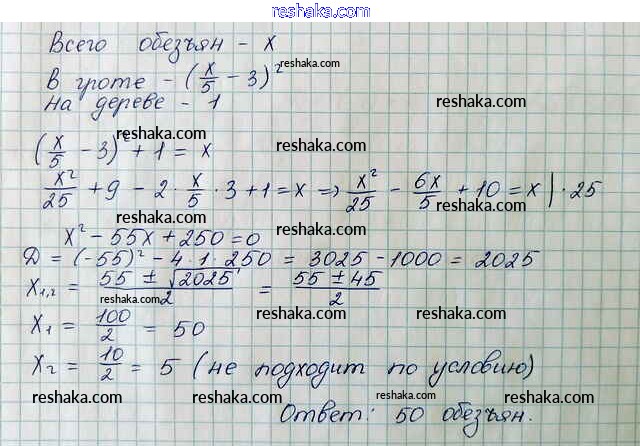 reshaka.com
Всего обезъян - x
reshaka.com
В гроте - (x/5 - 3)²
на дереве - 1
reshaka.com
reshaka.com
(x/5 - 3)² + 1 = x
reshaka.com
x²/25 + 9 - 2 · x/5 · 3 + 1 = x => x²/25 - 6x/5 + 10 = x | · 25
reshaka.com
x² - 55x + 250 = 0
reshaka.com
Д = (-55)² - 4 · 1 · 250 = 3025 - 1000 = 2025
x1,2 = (55 ± √2025)/2 = (55 ± 45)/2
reshaka.com
reshaka.com
x1 = 100/2 = 50
reshaka.com
reshaka.com
x2 = 10/2 = 5 (не подходит по условию)
reshaka.com
reshaka.com
reshaka.com
Ответ: 50 обезъян.
reshaka.com